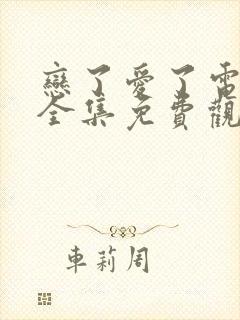 戀了愛了電
全集免費觀
車莉周